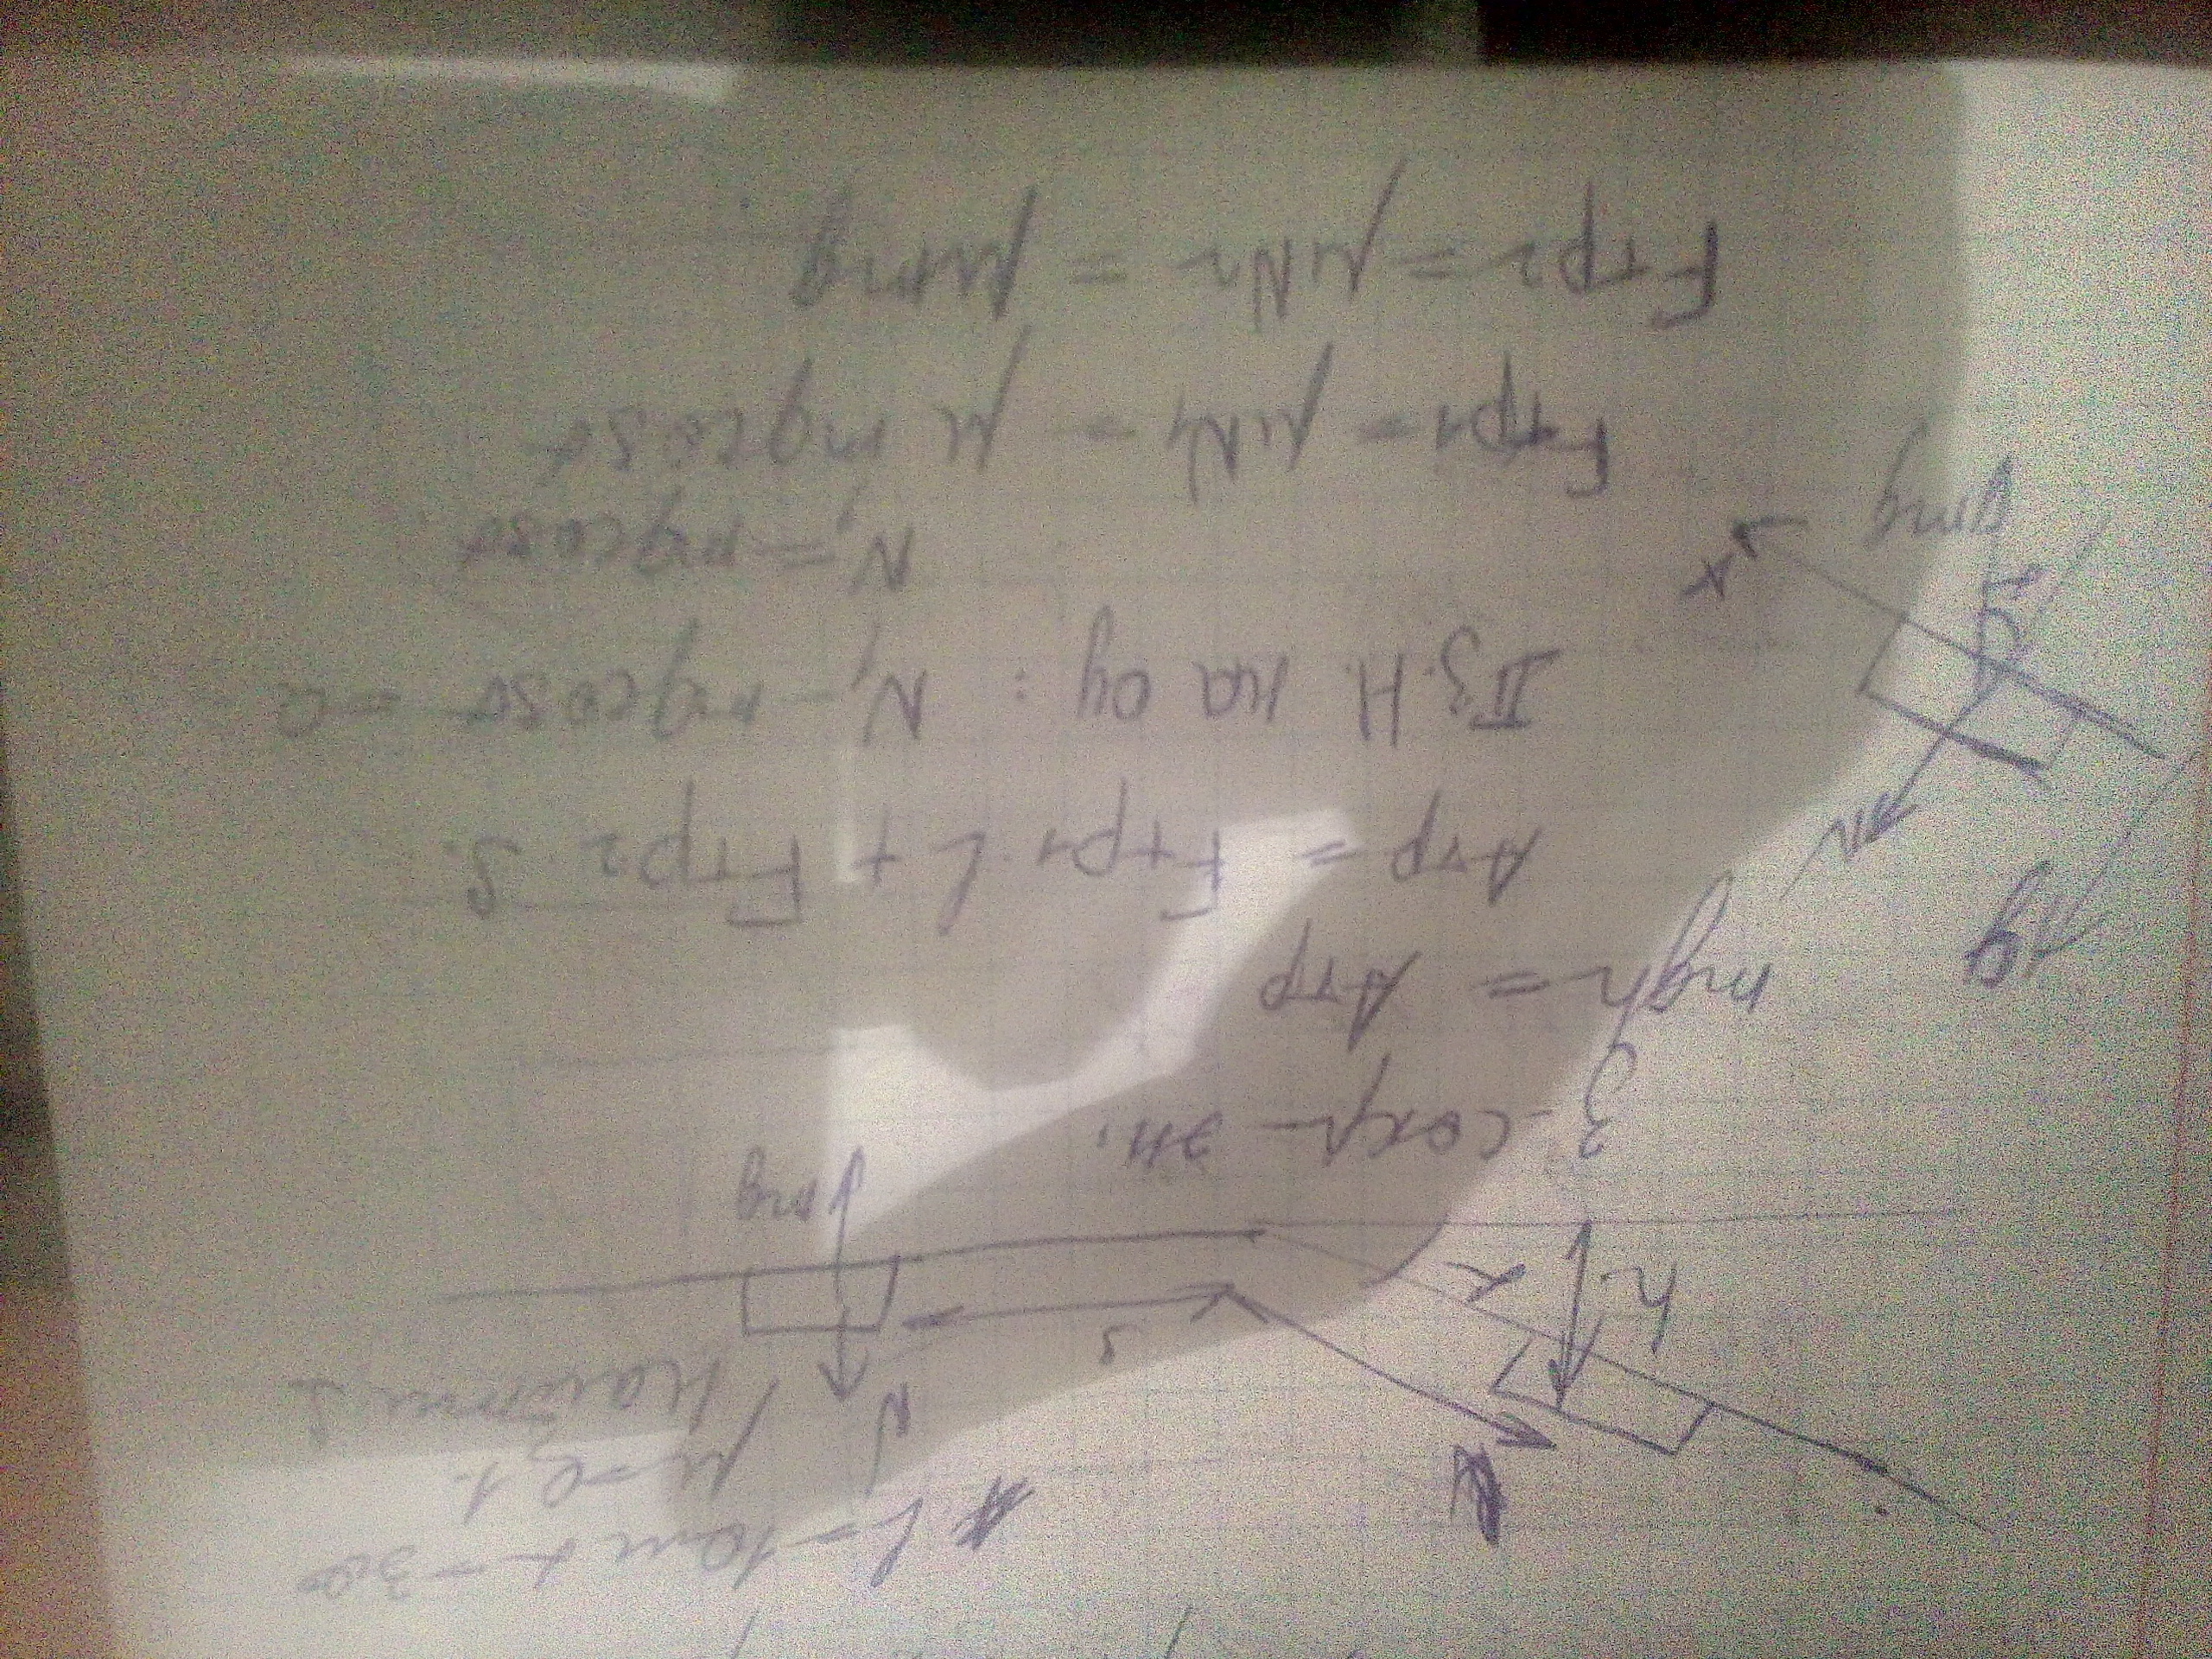 l=10м α=30°
μ=0,1.
Найти S
N
S
N
h
α
mg
З. сохр эн.
mgh = Aтр
Aтр = Fтр1·l + Fтр2 S.
y
N
II З.Н. на oy: N₁ - mgcosα = 0
N₁ = mgcosα
x
α
mg
Fтр1 = μN₁ = μ mgcosα
Fтр2 = μN₂ = μmg